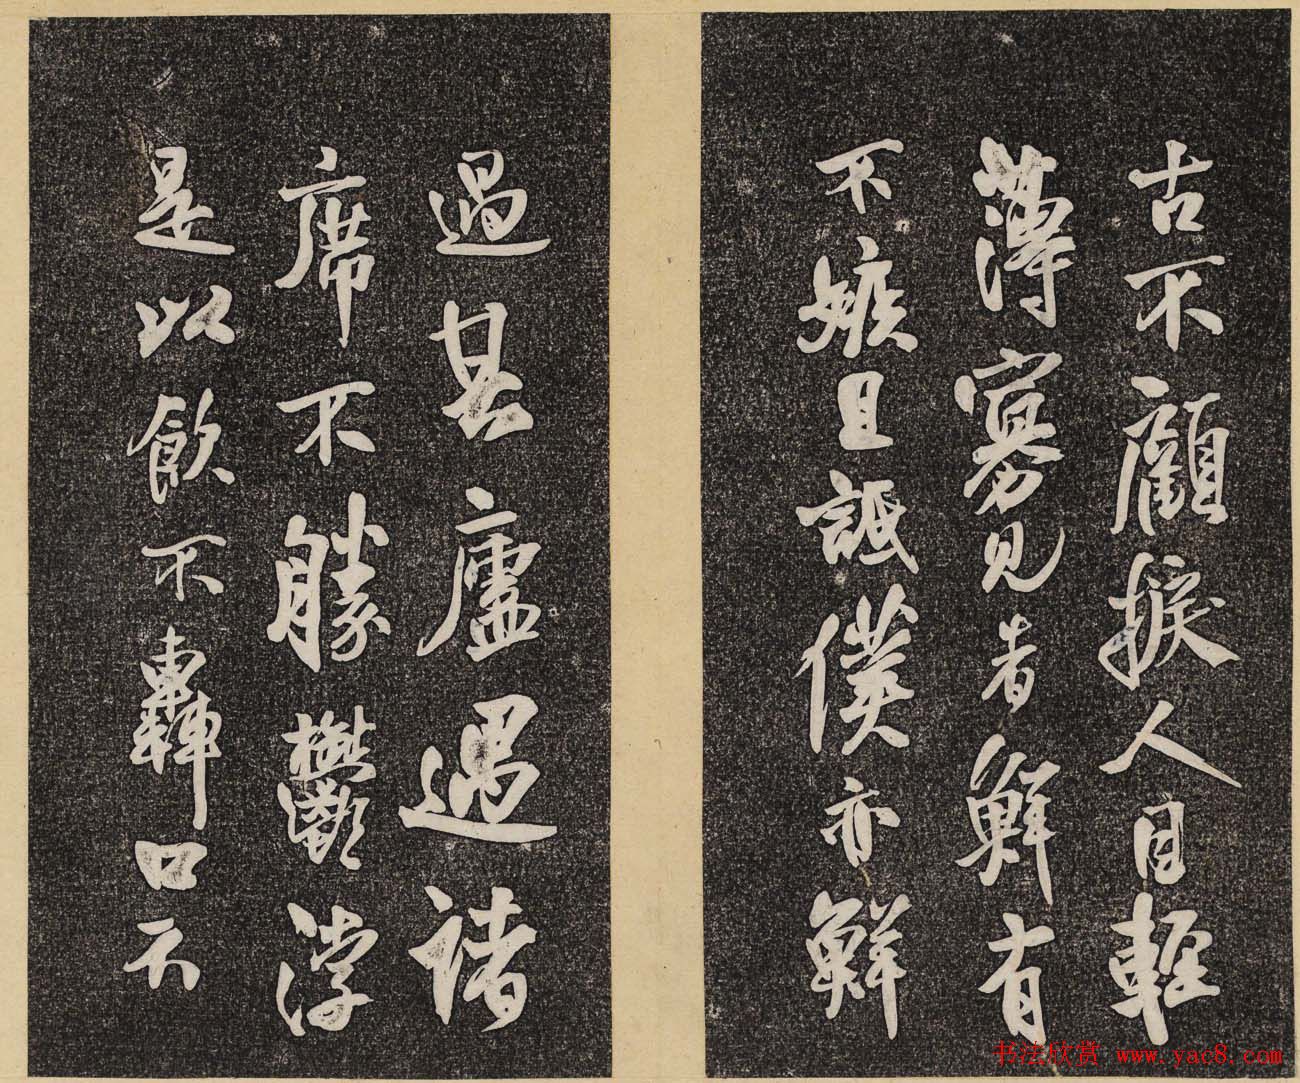 古不顧挨人自輕
薄寡見者鮮有
不嫉且詆僕亦鮮
過其廬遇諸
席不勝鬱浡
是以飲不轟口不
书法欣赏 www.yac8.com